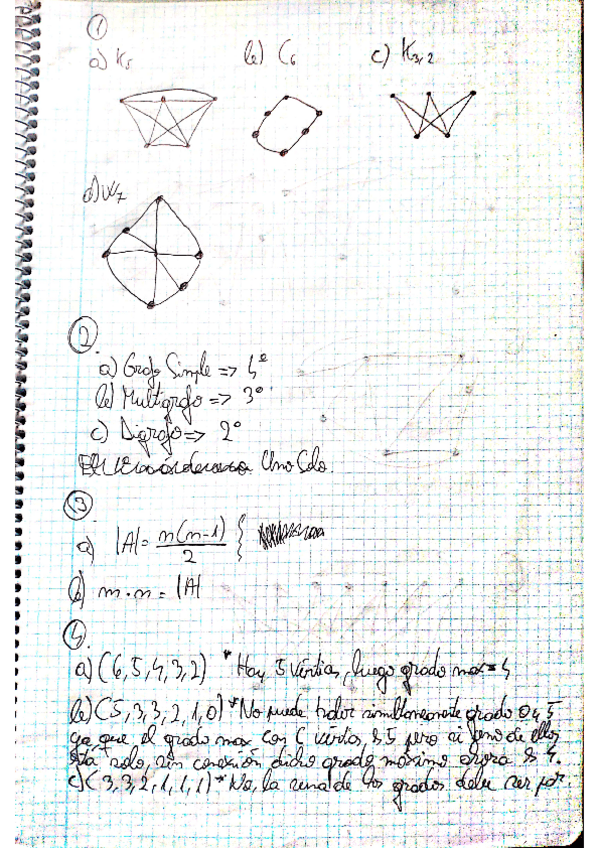 1
a) K5 b) C6 c) K3,2
d) W7
2
a) Grafo Simple => 4º
b) Multigrafo => 3º
c) Digrafo => 2º
Uno Solo.
3
a) |A| = n(n-1) / 2 {
b) m·n = |A|
4
a) (6,5,4,3,2) * Hay 5 vértices, luego grado max = 4
b) (5,3,3,2,1,0) * No puede haber simultaneamente grado 0 y 5
ya que el grado max con 6 vértices es 5 pero si uno de ellos
está solo, sin conexión dicho grado máximo ahora es 4.
c) (3,3,2,1,1,1) * No, la suma de los grados debe ser par